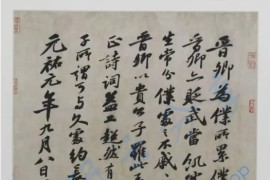 晋卿為僕所累僕
晋卿亦貶武當飢
生常分僕處之不戚
晋卿以貴公子罹此
心詩詞益工超然有
子所謂可与久處約長
元祐元年九月八日